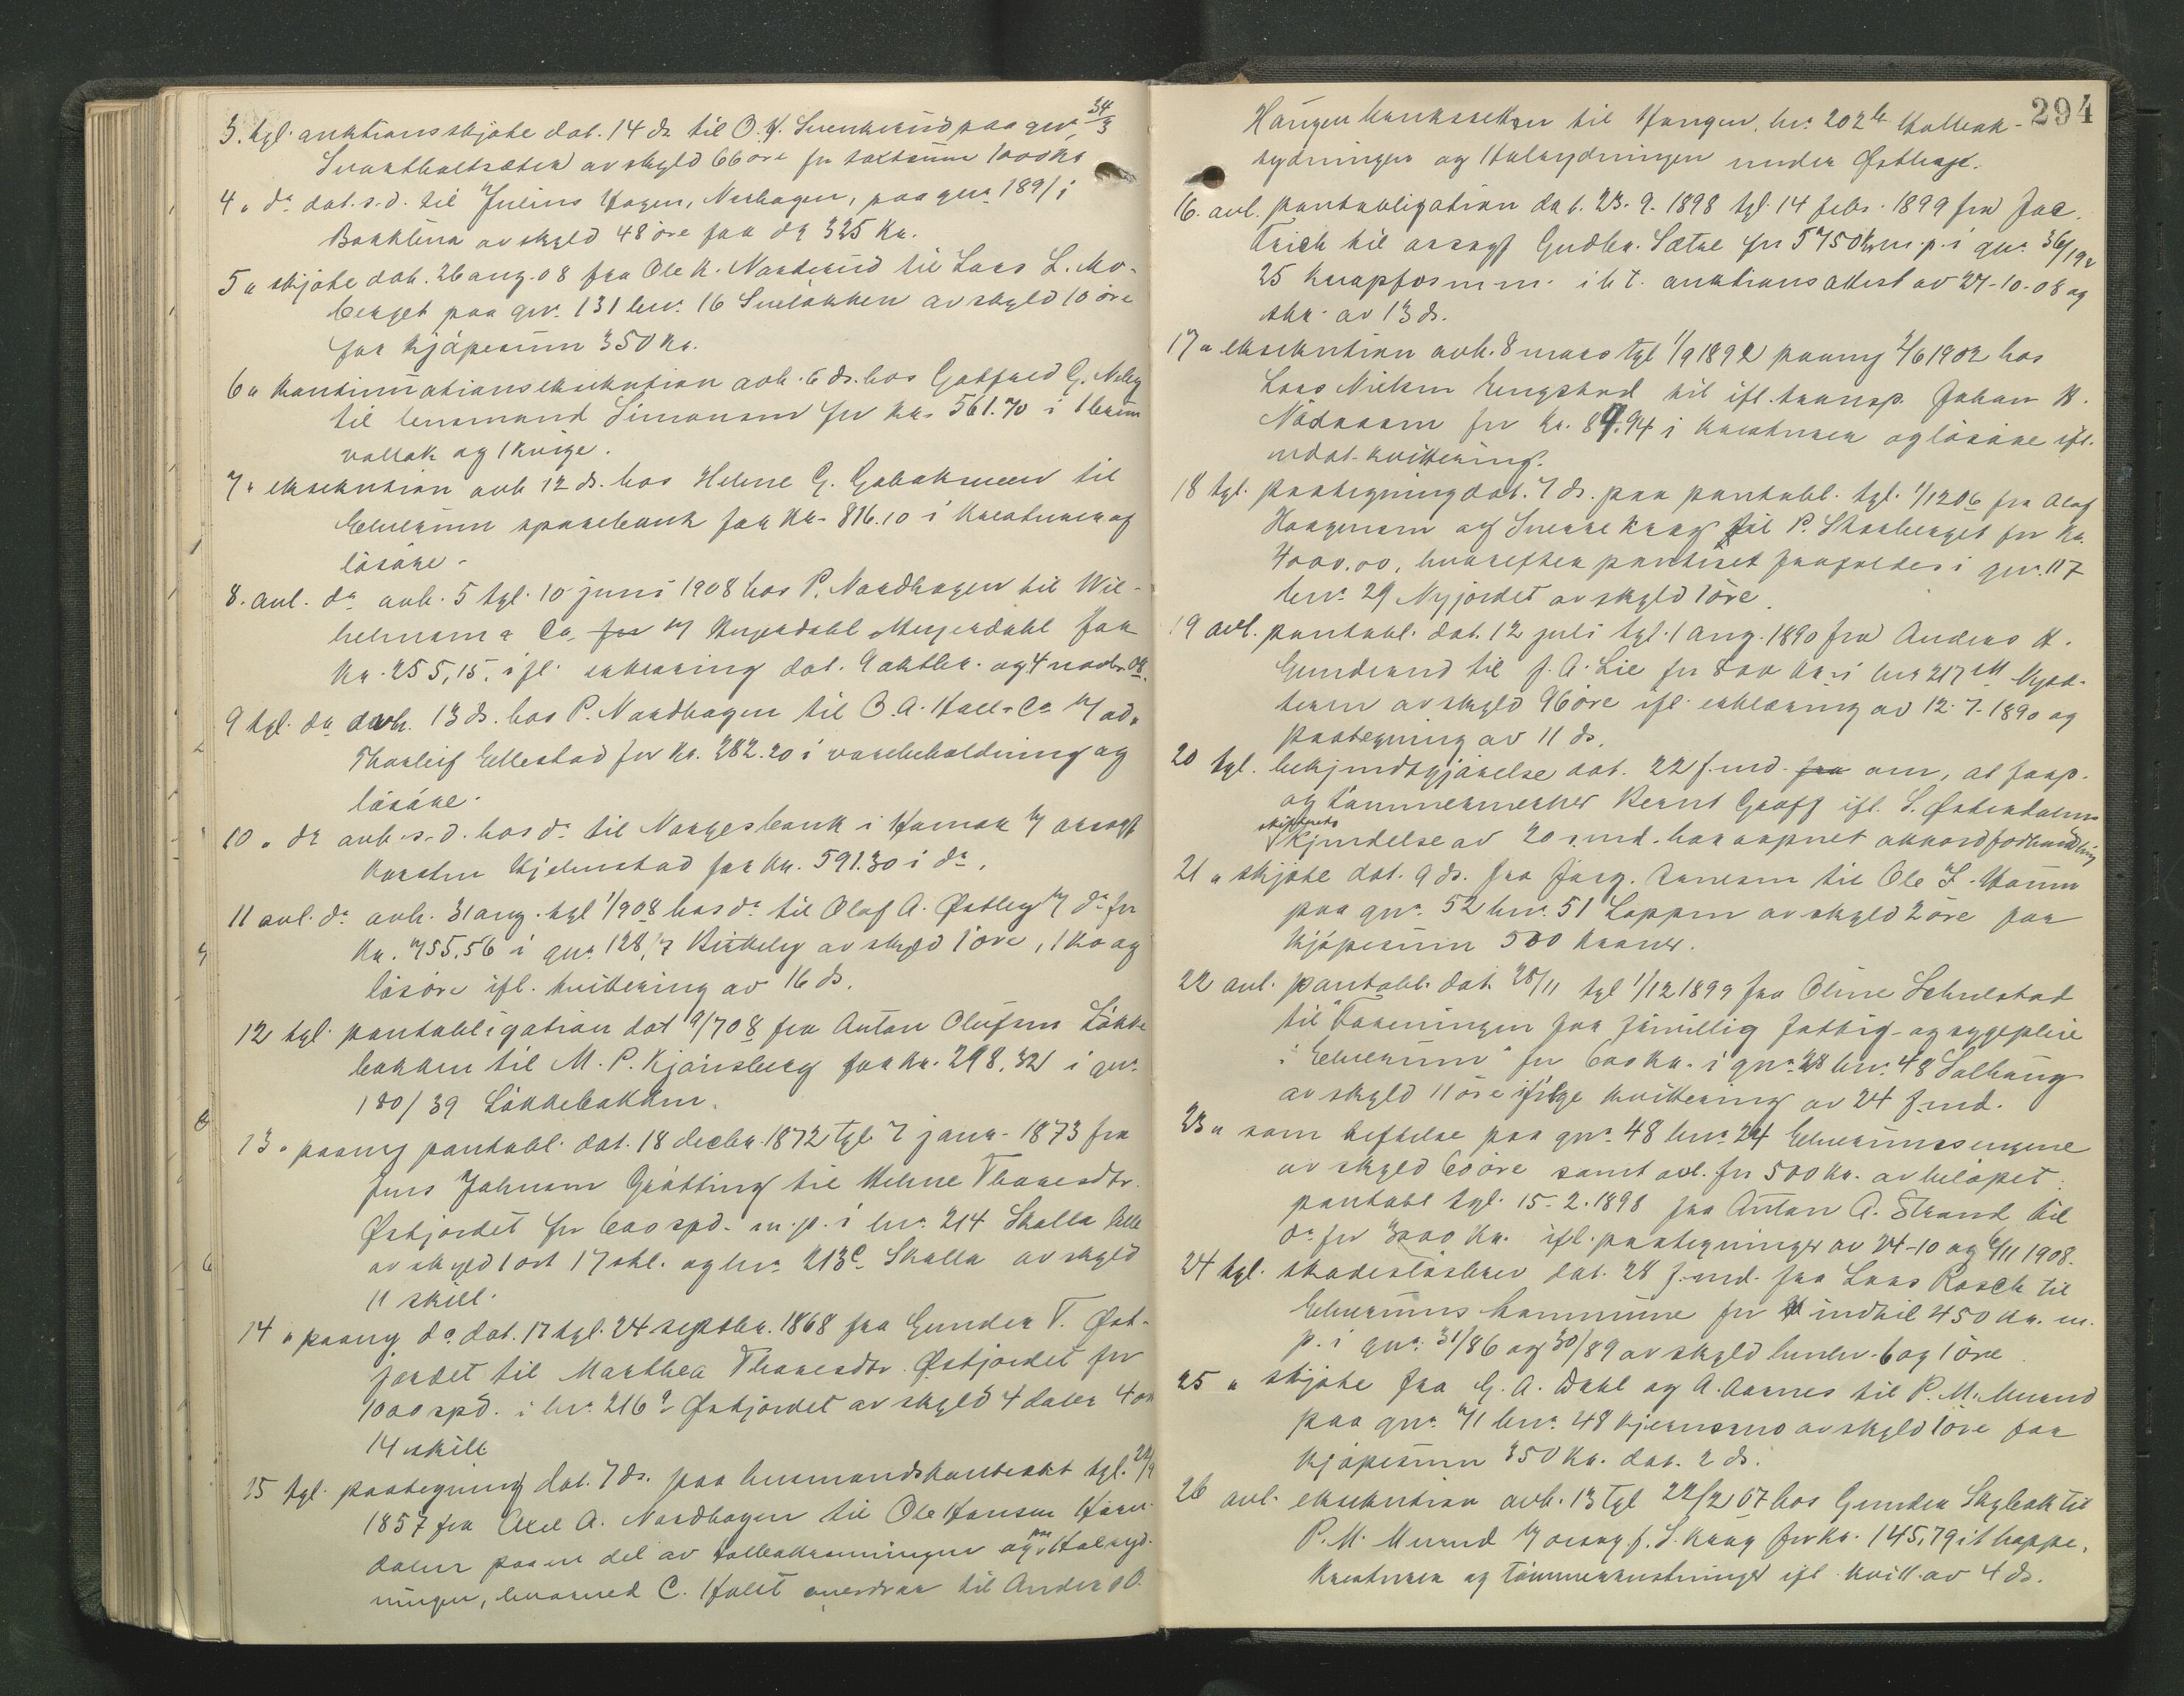 3. tgl. auktionsskjøte dat. 14 ds. til O. H. Svenkerud paa gnr. 34/3
Svartholtsæteren av skyld 66 øre for 1000 kr
4 " do dat. s. d. til Julius Hagen, Nerhagen, paa gnr. 189/1
Bakklien av skyld 48 øre for do 325 kr.
5 " skjøte dat. 26 aug. 08 fra Ole K. Norderud til Lars L. Mo-
berget paa gnr. 131 bnr. 16 Sneløkken av skyld 10 øre
for kjøpesum 350 kr.
6 " kontinuationseksekution avh. 6 ds. hos Gotfred G. Neby
til lensmand Simonsen for kr. 561.70 i 1 brun
vallak og 1 kvige.
7 " eksekution avh 12 ds. hos Helene G. Gobaksveen til
Elverum sparebank for kr. 816.10 i kreaturer og
løsøre.
8. avl. do avh. 5 tgl. 10 juni 1908 hos P. Nordhagen til Wil-
helmsen & Co. for v/ Meyerdahl for
kr. 255,15, ifl. erklæring dat. 9 oktbr. og 4 novbr 08.
9 tgl. do avh. 13 ds. hos P. Nordhagen til O. A. Hall & Co v/ adv.
Thorleif Ellestad for kr. 282.20 i varebeholdning og
løsøre.
10 " do avh. s. d. hos do til Norges bank i Hamar v/ orsagf
Karsten Hjelmstad for kr. 591.30 i do.
11 avl. do avh. 31 aug. tgl 1/908 hos do til Olaf A. Østby v/ do for
kr. 755.56 i gnr. 128/7 Kirkeby av skyld 1 øre, 1 ko og
løsøre ifl. kvittering av 16 ds.
12 tgl. pantobligation dat 9/708 fra Anton Olufsen Løkke
bakken til M. P. Kjønsberg for kr. 298.32 i gnr.
180/39 Løkkebakken.
13 " paany pantobl. dat. 18 decbr. 1872 tgl 7 janr. 1873 fra
Jens Johnsen Grøtting til Helene Thoresdtr.
Østjordet for 600 spd. m. p. i lnr. 214 Skalla lille
av skyld 1 ort 17 skl. og lnr. 213c Skalla av skyld
11 skill.
14 " paany do dat. 17 tgl. 24 septbr. 1868 fra Gunder T. Øst-
jordet til Marthea Thoresdtr. Østjordet for
1000 spd. i lnr. 216a Østjordet av skyld 4 daler 4 ort
14 skill
15 tgl. paategning dat. 7 ds. paa husmandskontrakt tgl. 22/9
1857 fra Axel A. Nordhagen til Ole Hansen
dalen paa en del av og paa Halvryd-
ningen, hvorved C. Holst overdrar til Anders O.
294
Haugen til Haugen, lnr. 202b
rydningen og Halvrydningen under Østhage.
16. avl. pantobligation dat. 23. 9. 1898 tgl. 14 febr. 1899 fra Jac.
Erich til orsagf Gudbr. Sætre for 5750 kr m. p. i gnr. 36/19,
25 Knapfos m. m. i h t. auktionsattest av 27-10-08 og
skr. av 13 ds.
17 " eksekution avh. 8 mars tgl 1/9 1892 paany 2/6 1902 hos
Lars Nielsen Engstad til ifl. transp. Johan K.
Nødaasen for kr. 89.94 i kreaturer og løsøre ifl.
udat. kvittering.
18 tgl. paategning dat. 7 ds. paa pantobl. tgl. 1/1206 fra Olaf
Haagensen og Sverre Krag til P. Skarberget for kr.
4000.00, hvorefter pantet frafaldes i gnr. 117
bnr. 29 Nyjordet av skyld 1 øre.
19 avl. pantobl. dat. 12 juli tgl. 1 aug. 1890 fra Anders H.
Gunderud til J. A. Lie for 800 kr. i lnr. 217
av skyld 96 øre ifl. erklæring av 12-7-1890 og
paategning av 11 ds.
20 tgl. bekjendtgjørelse dat. 22 f. md. fra om, at
og tømmermerker Bernt Graff ifl. S. Østerdalens
skifterets
kjendelse av 20 s. md. har aapnet akkordforhandling
21 " skjøte dat. 9 ds. fra Jørg. Arnesen til Ole J. Haum
paa gnr. 52 bnr. 51 Lappen av skyld 2 øre for
kjøpesum 500 kroner.
22 avl. pantobl. dat. 28/11 tgl 1/12 1899 fra Oline Schulstad
til "Foreningen for frivillig fattig- og sygepleie
i Elverum" for 600 kr. i gnr. 28 bnr. 48 Solhaug
av skyld 11 øre ifølge kvittering av 24 f. md.
23 " som heftelse paa gnr. 48 bnr. 24 Elverumsengene
av skyld 60 øre samt avl. for 500 kr. av beløpet:
pantobl tgl. 15-2. 1898 fra Anton A. Strand til
do for 3000 kr. ifl. paategninger av 24-10 og 6/11 1908.
24 tgl. skadesløsbrev dat. 28 f. md. fra Lars Rasch til
Elverums kommune for indtil 450 kr. m.
p. i gnr. 31/86 og 30/89 av skyld henhv. 6 og 1 øre
25 " skjøte fra G. A. Dahl og A. Aarnes til P. M. Murud
paa gnr. 71 bnr. 48 Kjernmo av skyld 1 øre for
kjøpesum 350 kr. dat. 2 ds.
26 avl. eksekution avh. 13 tgl 22/2 07 hos Gunder Skybak til
P. M. Murud v/ orsagf. S. Krag for kr. 145,79 i 1 hoppe,
kreaturer og tømmer ifl. kvitt. av 4 ds.